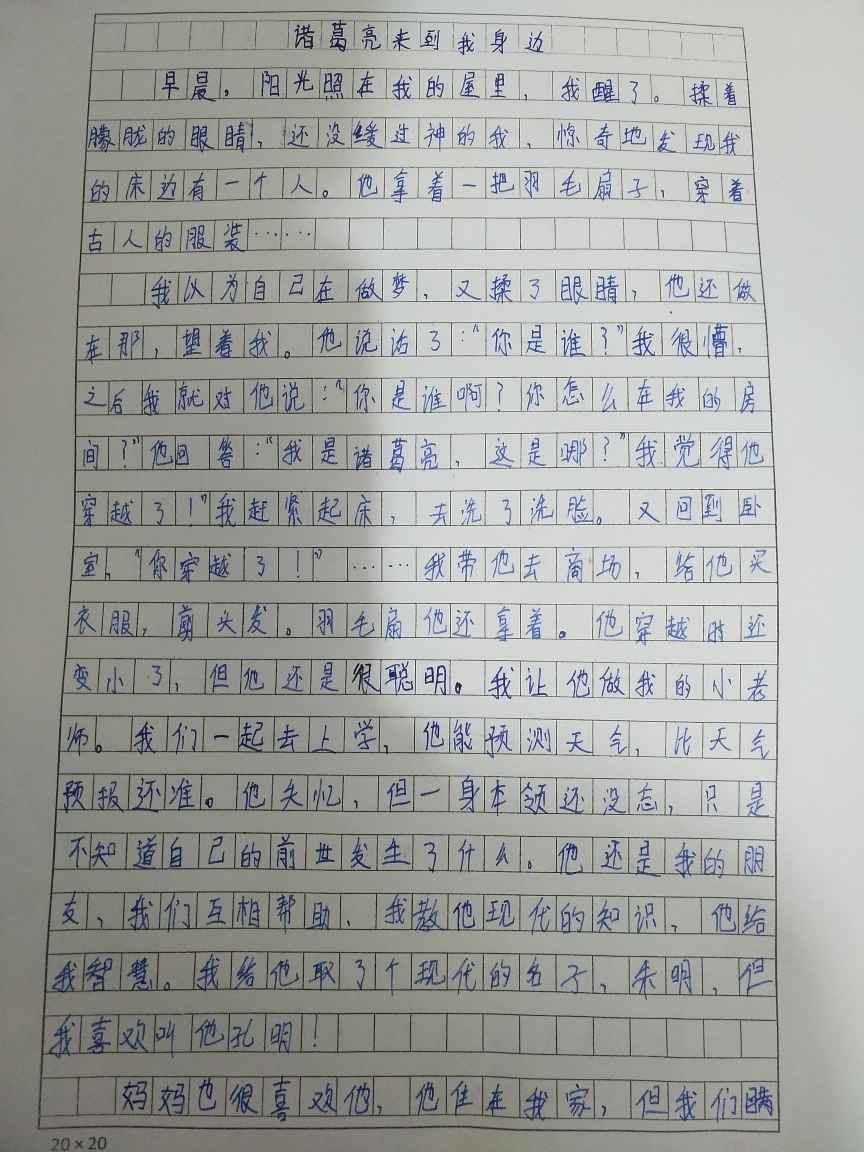 诸葛亮来到我身边
早晨，阳光照在我的屋里，我醒了。揉着
朦胧的眼睛，还没缓过神的我，惊奇地发现我
的床边有一个人。他拿着一把羽毛扇子，穿着
古人的服装……
我以为自己在做梦，又揉了眼睛，他还做
在那，望着我。他说话了：“你是谁？”我很懵，
之后我就对他说：“你是谁啊？你怎么在我的房
间？”他回答：“我是诸葛亮，这是哪？”我觉得他
穿越了！”我赶紧起床，去洗了洗脸。又回到卧
室，“你穿越了！”……我带他去商场，给他买
衣服，剪头发。羽毛扇他还拿着。他穿越时还
变小了，但他还是很聪明。我让他做我的小老
师。我们一起去上学，他能预测天气，比天气
预报还准。他失忆，但一身本领还没忘，只是
不知道自己的前世发生了什么。他还是我的朋
友，我们互相帮助，我教他现代的知识，他给
我智慧。我给他取了个现代的名子，朱明，但
我喜欢叫他孔明！
妈妈也很喜欢他，他住在我家，但我们瞒
20×20